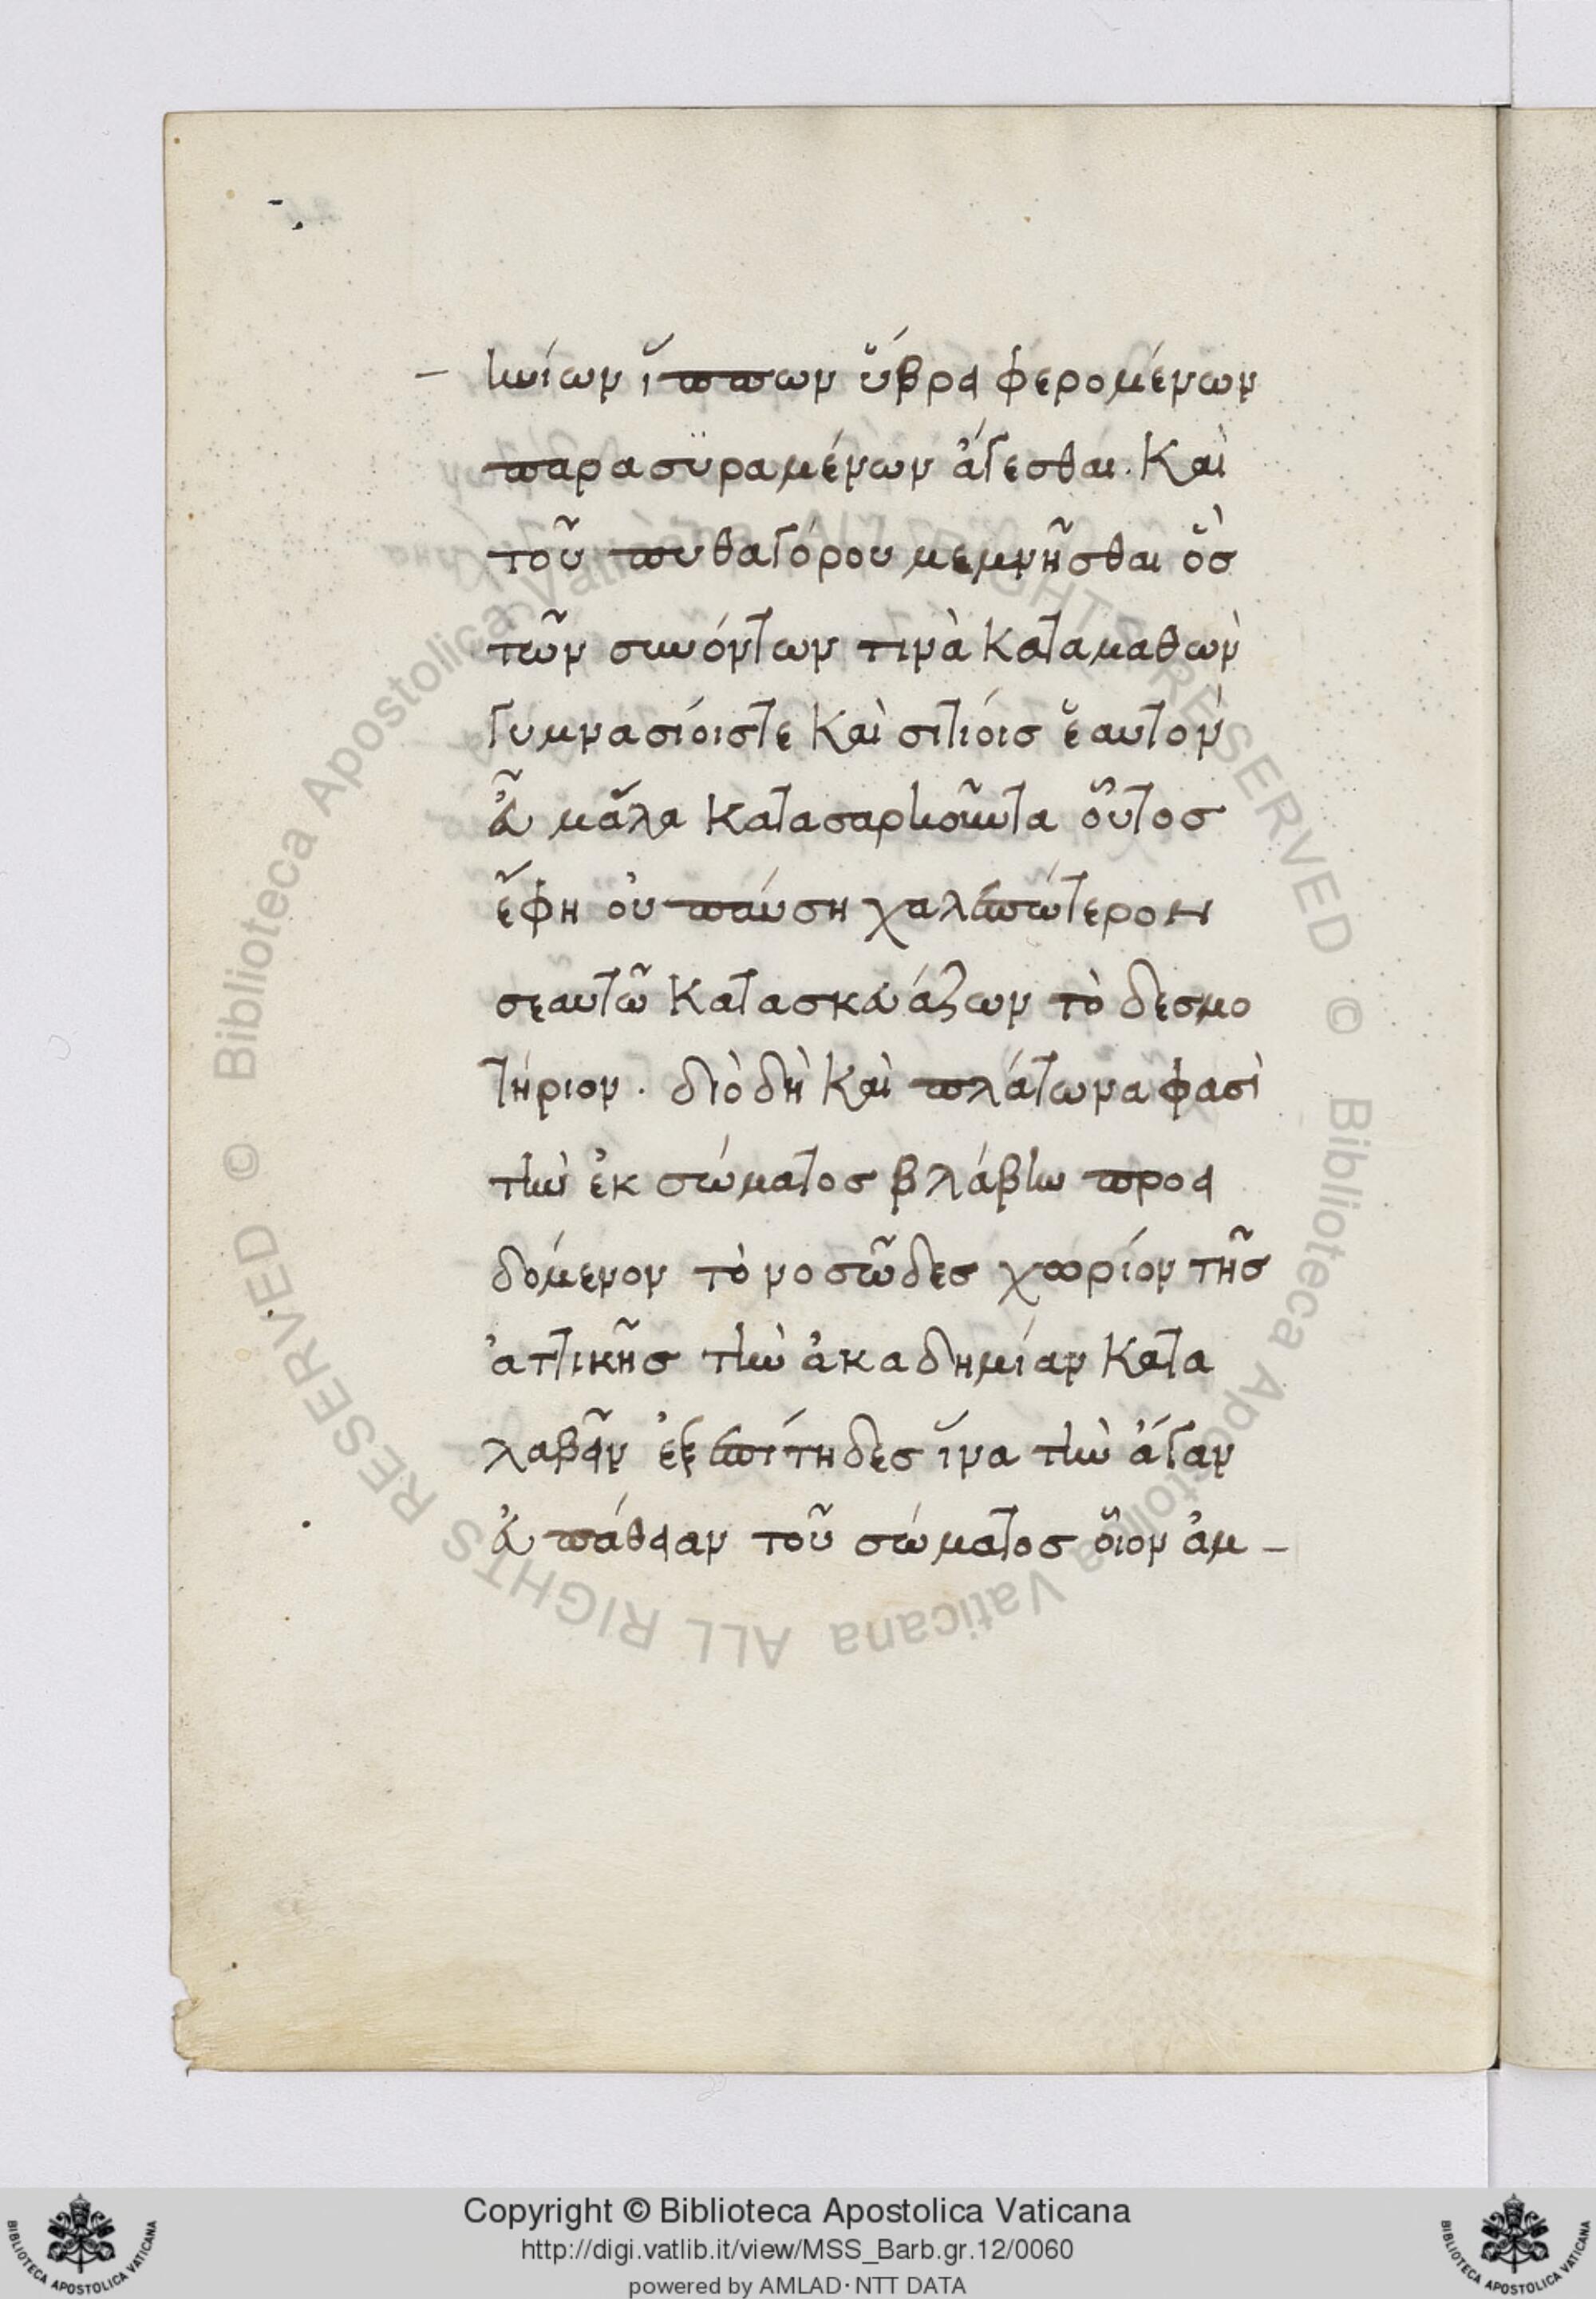 - ηνίων ἵππων ὕβρει φερομένων
παρασϋραμένων ἄγεσθαι. Καὶ
τοῦ πυθαγόρου μεμνῆσθαι ὃσ
τῶν συνόντων τινὰ καταμαθὼν
γυμνασίοιστε καὶ σιτίοισ ἑαυτὸν
εὖ μάλα κατασαρκοῦντα οὗτοσ
ἔφη οὐ παύση χαλεπώτερον
σεαυτῶ κατασκευάζων τὸ δεσμο
τήριον. διὸ δὴ καὶ πλάτωνα φασὶ
τὴν ἐκ σώματοσ βλάβην προει
δόμενον τὸ νοσῶδεσ χωρίον τῆσ
ἀττικῆσ τὴν ἀκαδημίαν κατα
λαβεῖν ἐξεπίτηδεσ ἵνα τὴν ἄγαν
εὐπάθειαν τοῦ σώματοσ οἷον ἀμ -
© Biblioteca Apostolica Vaticana ALL RIGHTS RESERVED © Biblioteca Apostolica Vaticana ALL RIGHTS RESERVED
Copyright © Biblioteca Apostolica Vaticana
http://digi.vatlib.it/view/MSS_Barb.gr.12/0060
powered by AMLAD·NTT DATA
BIBLIOTECA APOSTOLICA VATICANA
BIBLIOTECA APOSTOLICA VATICANA